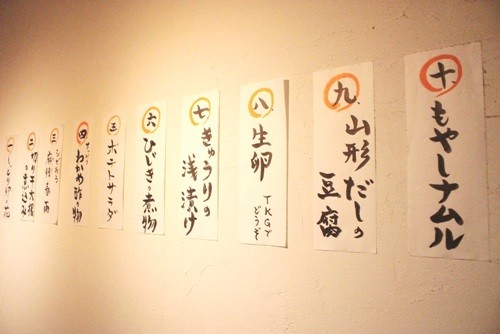 十、もやしナムル
九、山形だしの
豆腐
八、生卵
TKGで
どうぞ
七、きゅうりの
浅漬け
六、ひじきの煮物
ポテトサラダ
四、わかめ酢の物
三、
二、切り干し大根
の煮込み
一、